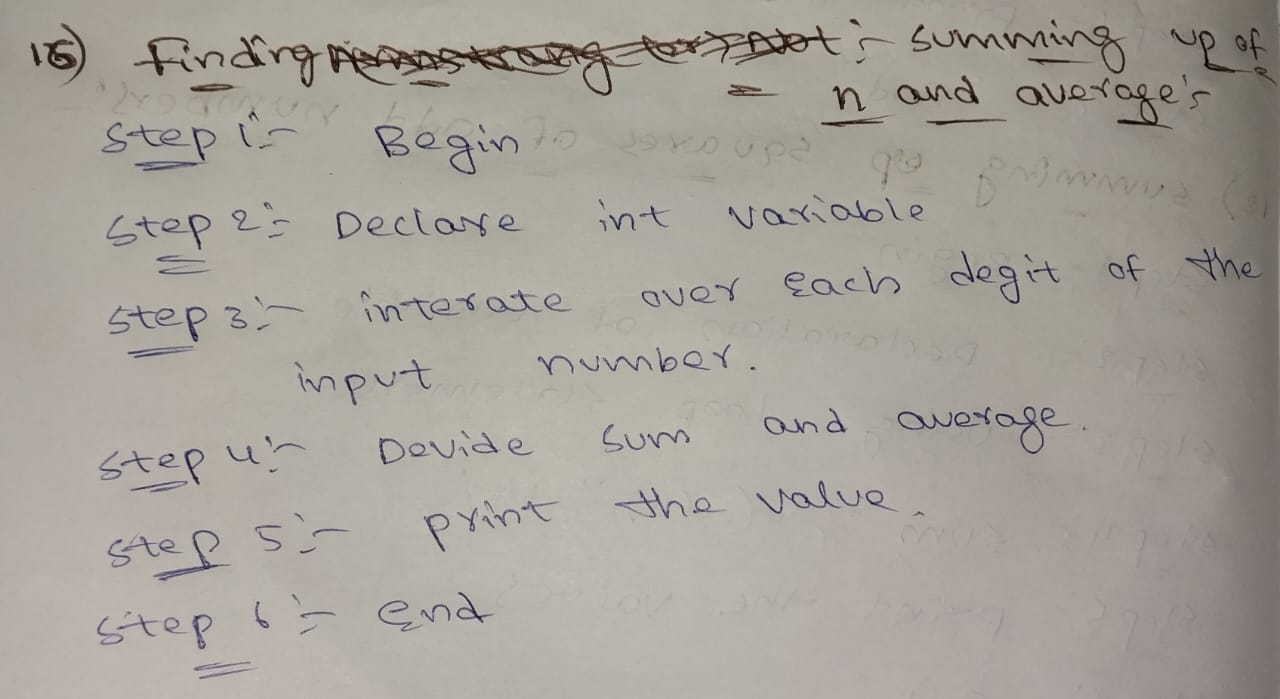 16) Finding :- summing up of
n and average's
Step 1:- Begin
Step 2:- Declare int variable
Step 3:- interate over Each degit of the
input number.
Step 4:- Devide sum and average.
Step 5:- print the value.
Step 6:- End